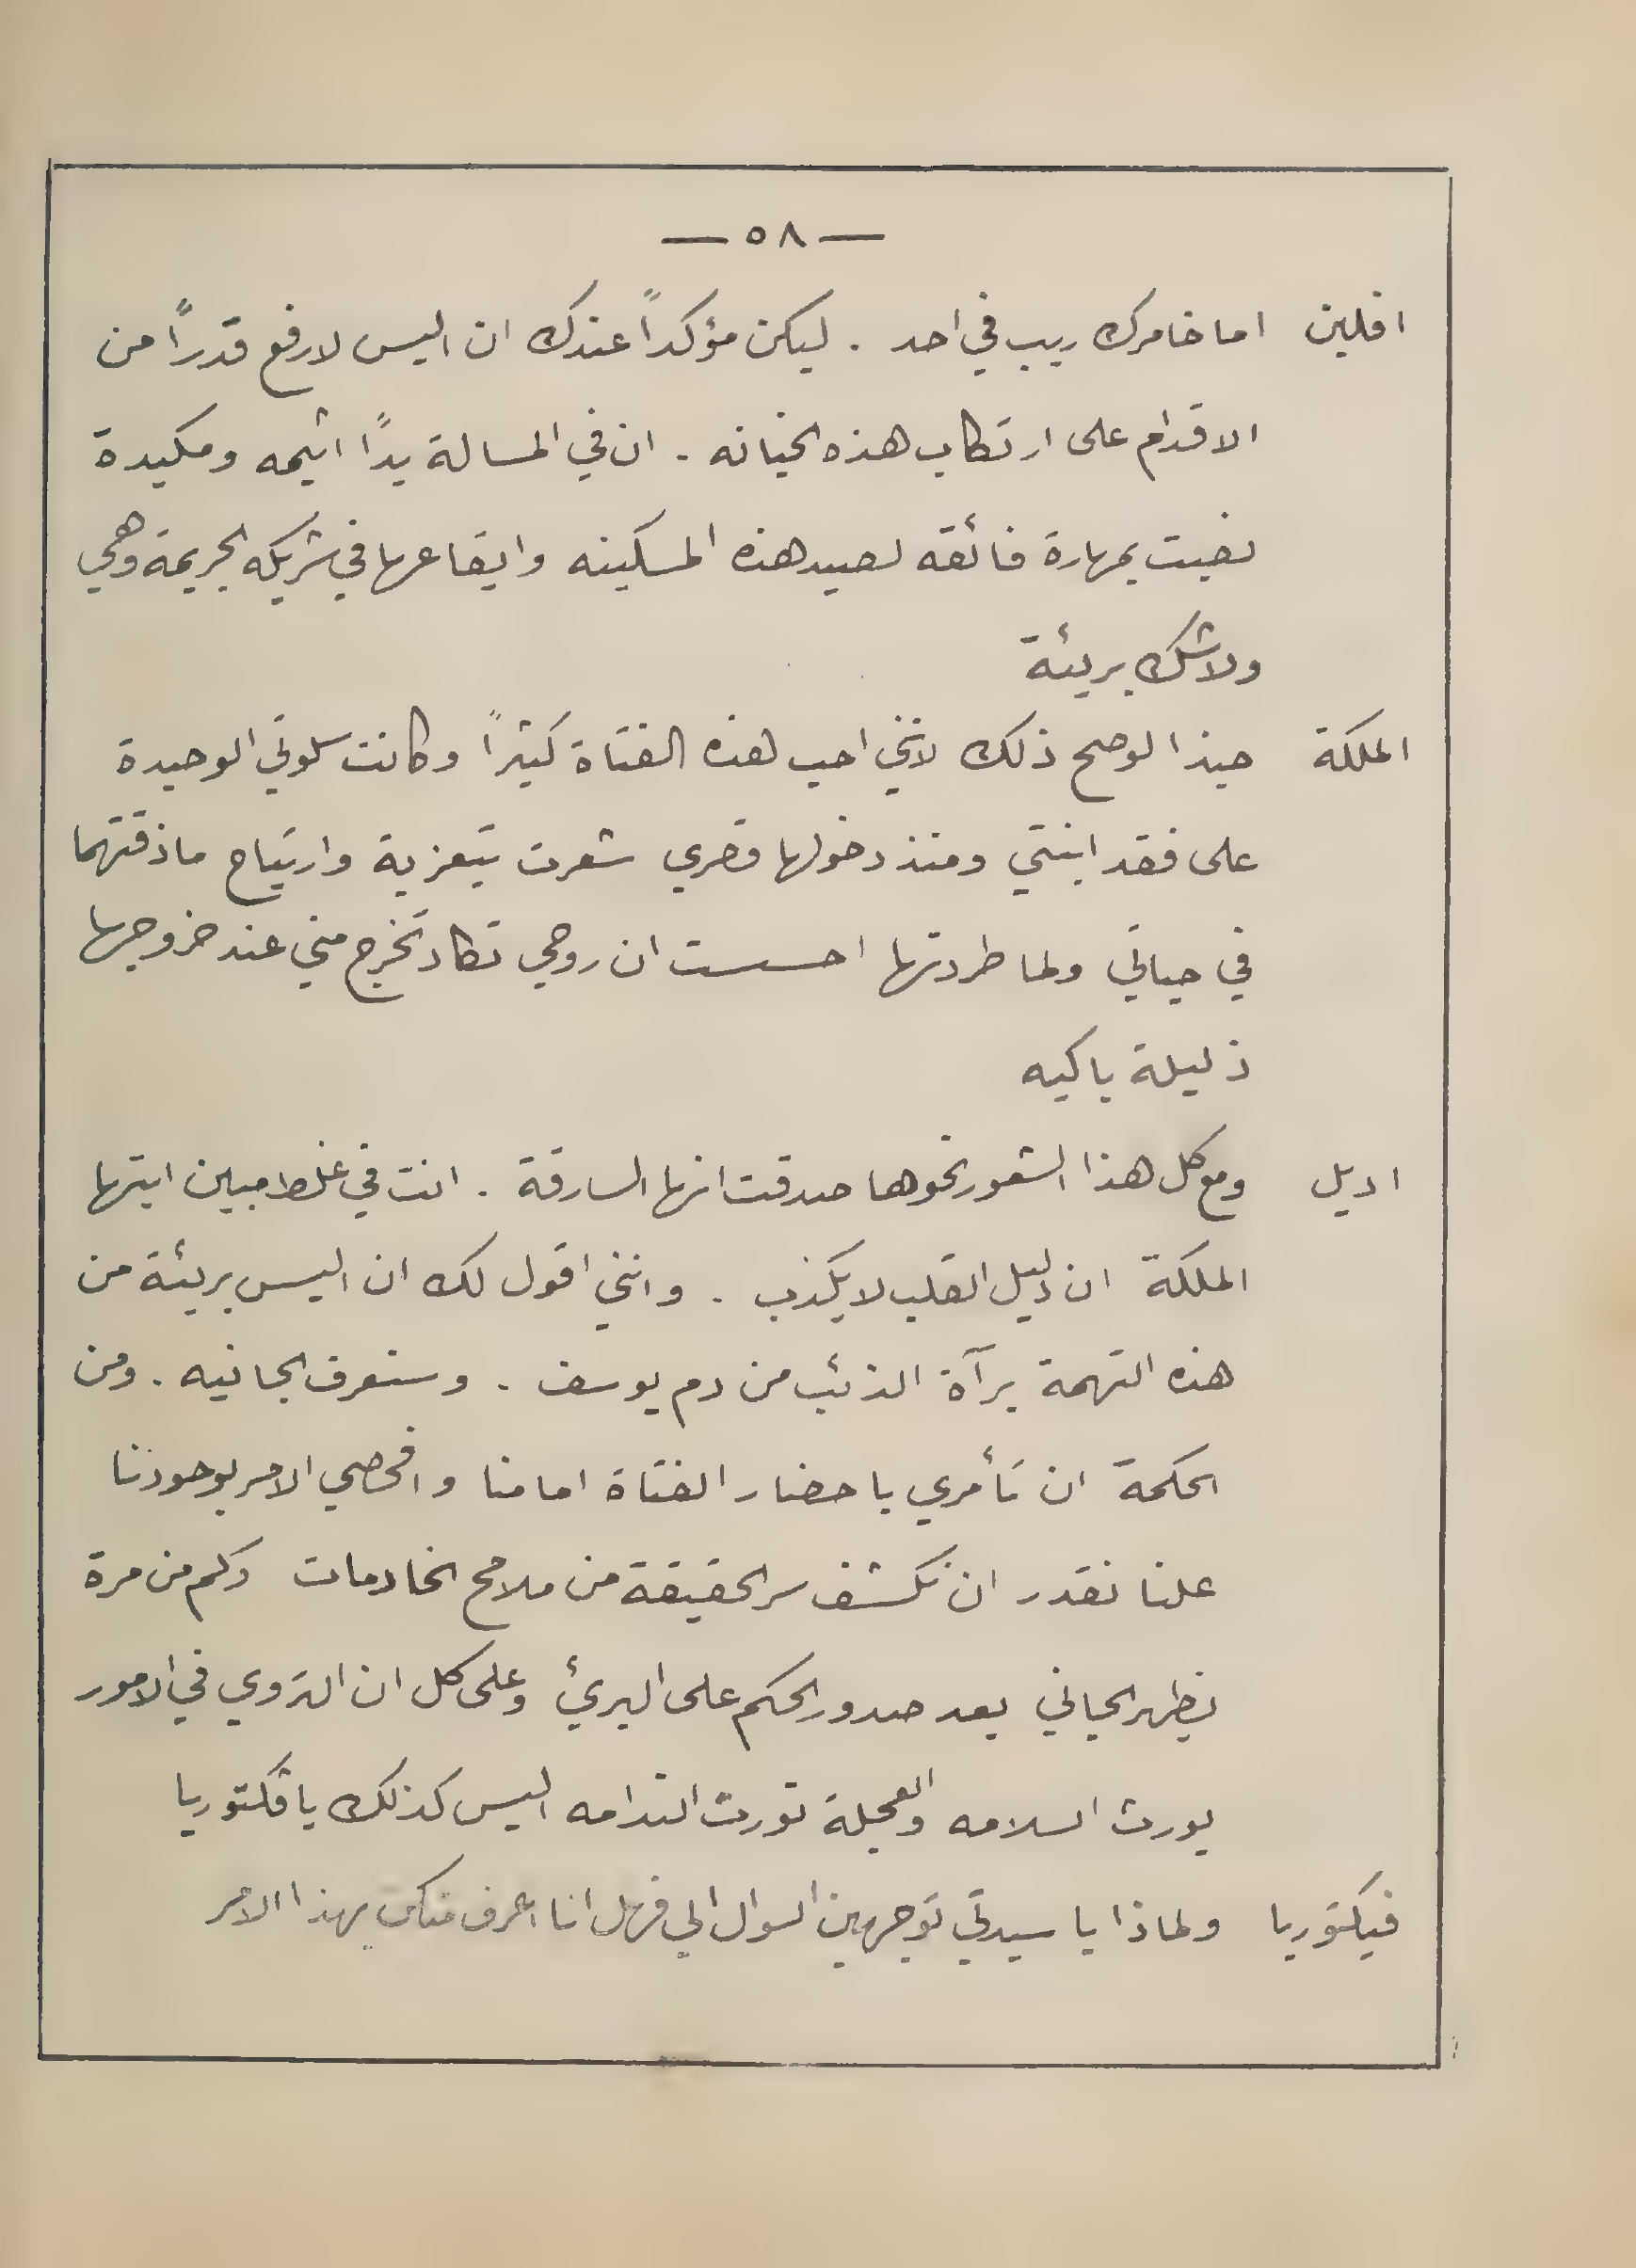 — ٥٨ —
افلين اما خامرك ريب في احد . ليكن مؤكداً عندك ان اليس لارفع قدراً من
الاقدام على ارتكاب هذه الخيانه . ان في المسالة يداً اثيمه ومكيدة
نصبت بمهارة فائقه لصيد هذه المسكينه وايقاعها في شريكه الجريمة وهي
ولا شك بريئة
الملكة حبذا لو صح ذلك لانني احب هذه الفتاة كثيراً وكانت سلوتي الوحيدة
على فقد ابنتي ومنذ دخولها قصري شعرت بتعزية وارتياح ما ذقتهما
في حياتي ولما طردتها احسست ان روحي تكاد تخرج مني عند خروجها
ذليلة باكيه
اديل ومع كل هذا الشعور نحوها صدقت انها السارقة . انت في غلط مبين ايتها
الملكة ان دليل القلب لا يكذب . وانني اقول لك ان اليس بريئة من
هذه التهمة برآة الذئب من دم يوسف . وستعرف الجانيه . ومن
الحكمة ان تأمري باحضار الفتاة امامنا وافحصي الامر بوجودنا
علنا نقدر ان نكشف سر الحقيقة من ملامح الخادمات وكم من مرة
يظهر الجاني بعد صدور الحكم على البريئ وعلى كل ان التروي في الامور
يورث السلامه والعجلة تورث الندامه اليس كذلك يا فكتوريا
فيكتوريا ولماذا يا سيدتي توجهين السوال الي فهل انا اعرف منكن بهذا الامر